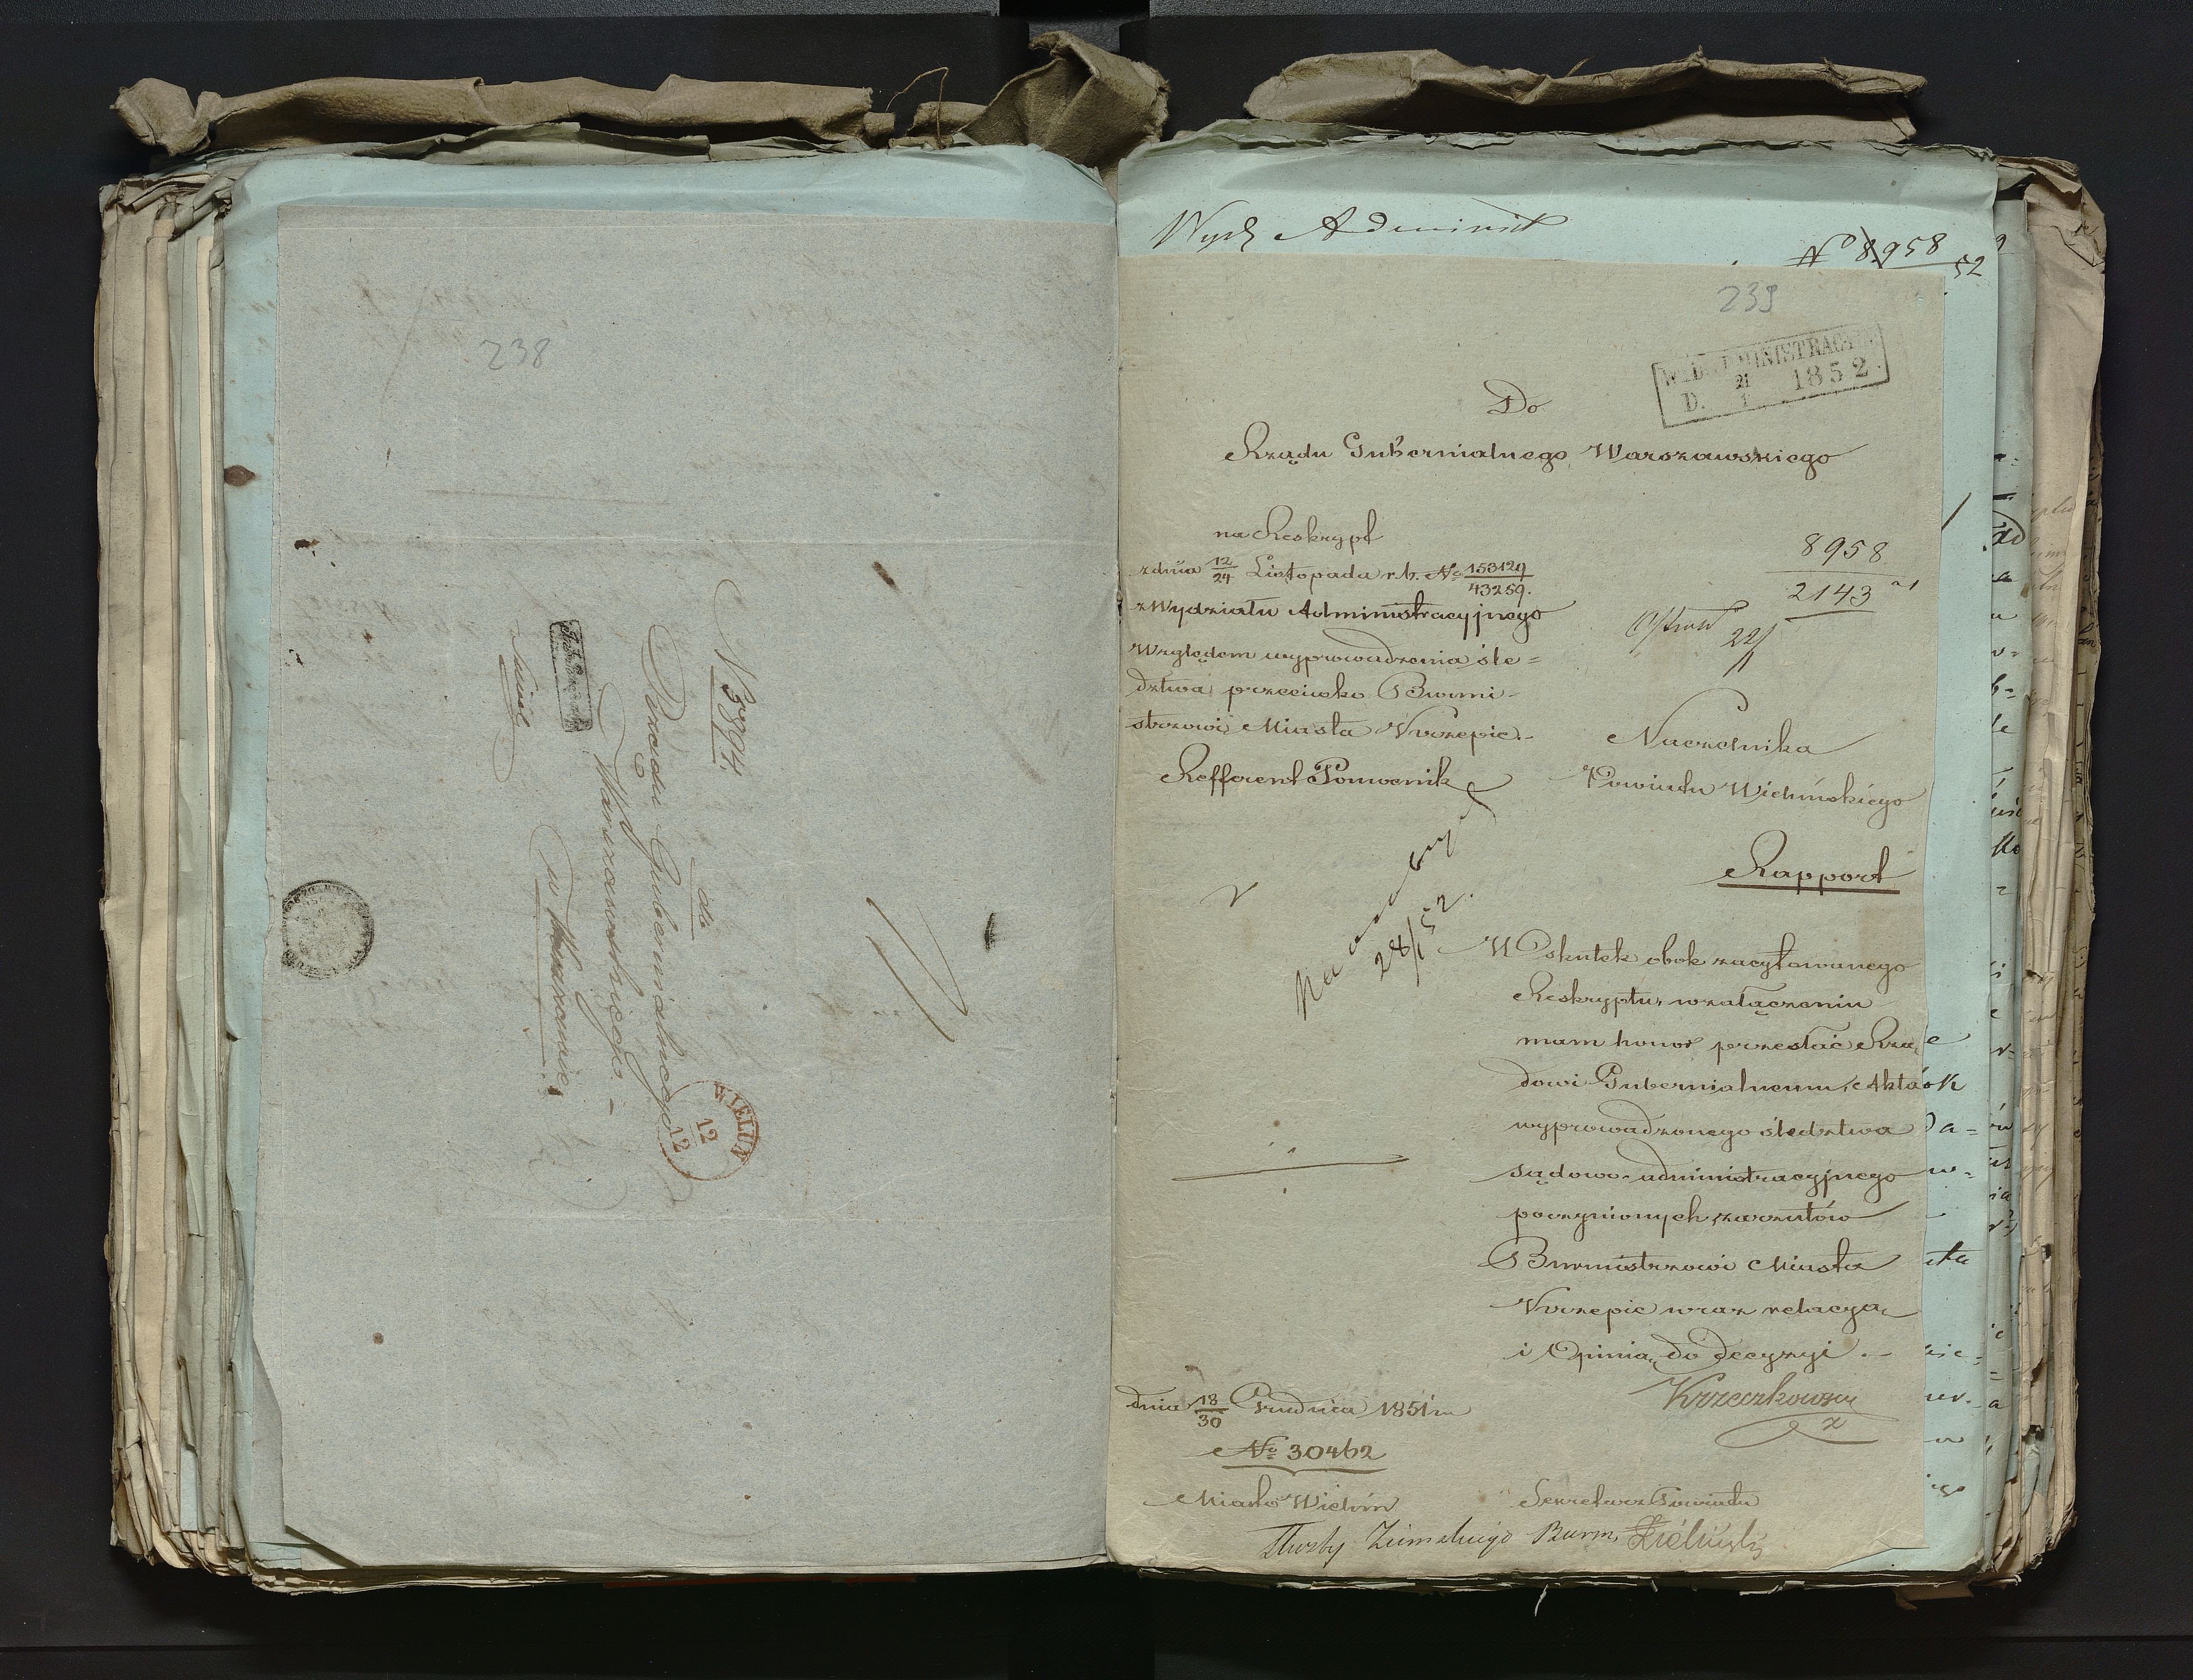 238
N 3894.
do
Rządu Gubernialnego
Warszawskiego.
w Warszawie
WIELUŃ
12
12
Wydz Administ
No 8958
52
239
1852
D.
Do
Rządu Gubernialnego Warszawskiego
na Reskrypt
z dnia 12/24 Listopada r.b. No 153129/43259.
z Wydziału Administracyjnego
Względem wyprowadzenia śle=
dztwa przeciwko Burmi-
strzowi Miasta Krzepic.-
Refferent Pomocnik
8958
2143
22/1
Naczelnika
Powiatu Wieluńskiego
Rapport
28/1 52.
W skutek obok zacytowanego
Reskryptu, w załączeniu
mam honor przesłać Rzą
dowi Gubernialnemu, Akta
wyprowadzonego śledztwa
sądowo-administracyjnego
poczynionych zarzutów
Burmistrzowi Miasta
Krzepic wraz relacyą
i Opinią do decyzyi.-
dnia 18/30 Grudnia 1851 r
No 30462
Miasto Wieluń
Krzeczkowski
Sekretarz Powiatu
Służby Ziemskiego Burm. Zieliński